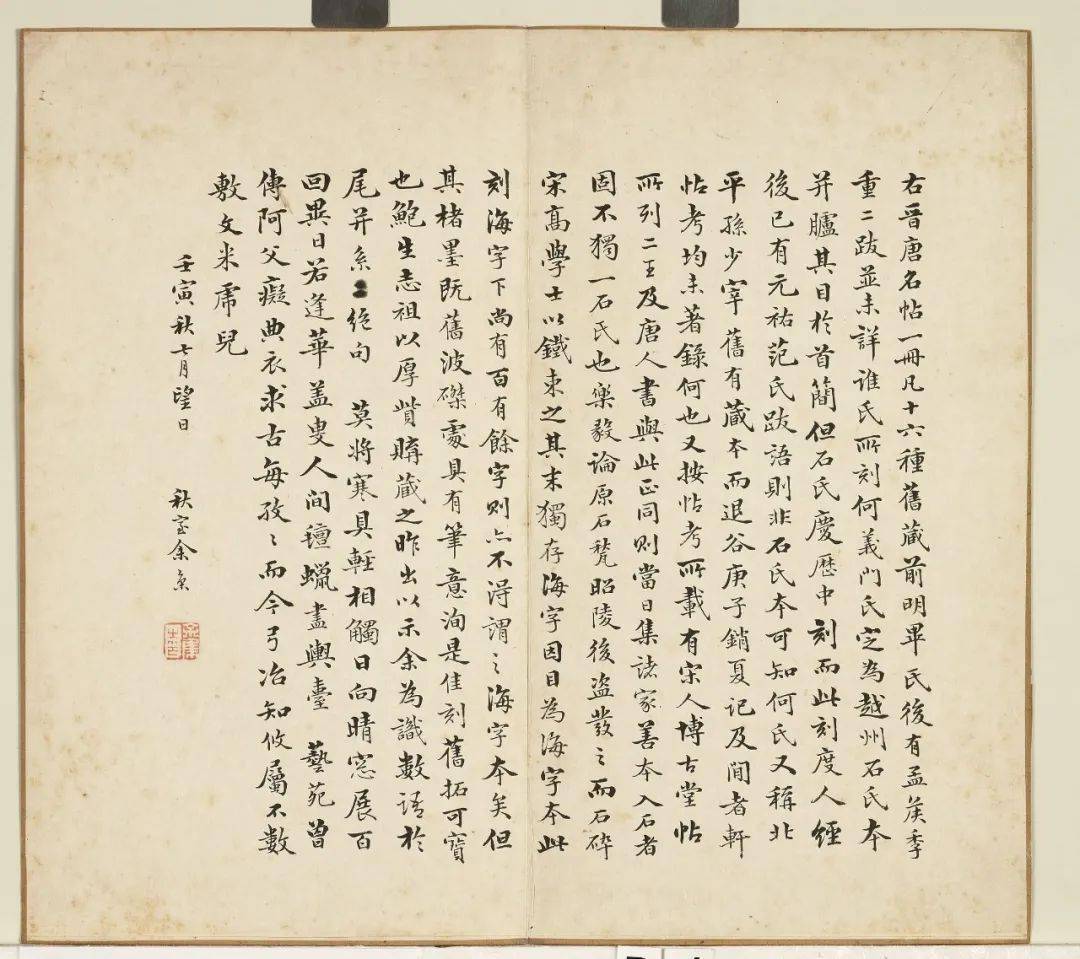 右晉唐名帖一冊凡十六種舊蔵前明畢氏後有孟矦季
重二跋並未詳誰氏所刻何義門氏定為越州石氏本
并臚其目於首簡但石氏慶歷中刻而此刻度人經
後已有元祐范氏跋語則非石氏本可知何氏又稱北
平孫少宰舊有蔵本而退谷庚子銷夏记及閒者軒
帖考均未著錄何也又按帖考所載有宋人博古堂帖
所列二王及唐人書與此正同則當日集諸家善本入石者
固不獨一石氏也樂毅論原石甃昭陵後盜發之而石碎
宋高學士以鐵束之其末獨存海字因目為海字本此
刻海字下尚有百有餘字則亦不得謂之海字本矣但
其楮墨既舊波磔處具有筆意洵是佳刻舊拓可寶
也鮑生志祖以厚貲購蔵之昨出以示余為識數語於
尾并系絕句 莫將寒具輕相觸日向晴窓展百
回異日若逢華盖叟人间壇蠟盡輿臺 藝苑曾
傳阿父癡典衣求古每孜〻而今弓冶知攸屬不數
敷文米虎兒
壬寅秋七月望日 秋室余集